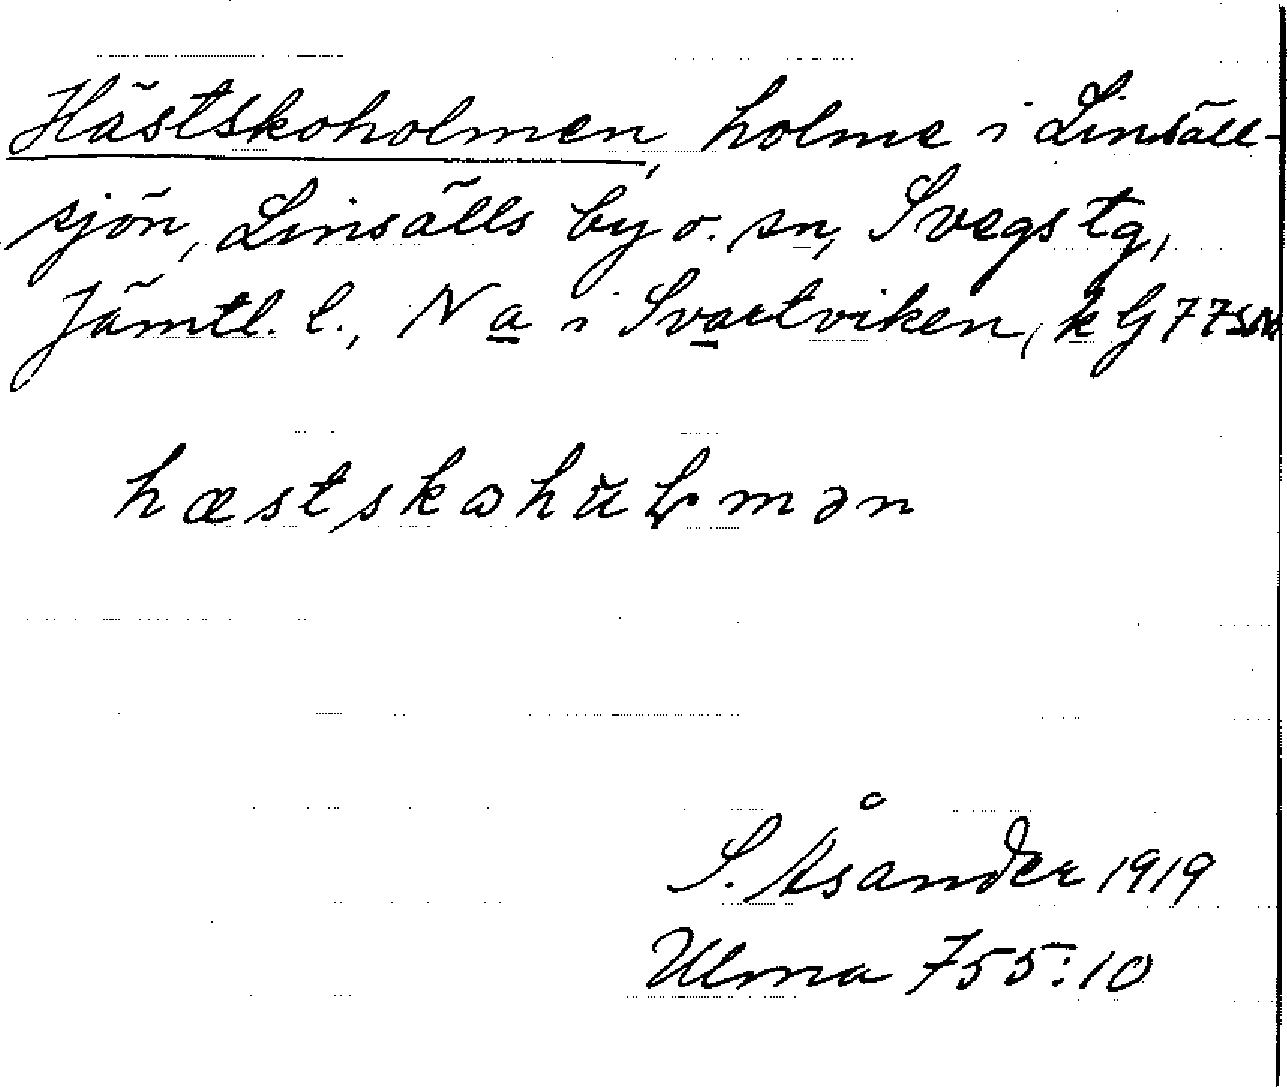 Hästskoholmen, holme i Linsäll-
sjön, Linsälls by o. sn, Svegs tg,
Jämtl. l., N a i Svartviken, k G 77
hæstskɷhu̇ḷmən
S. Åsander 1919
Ulma 755:10